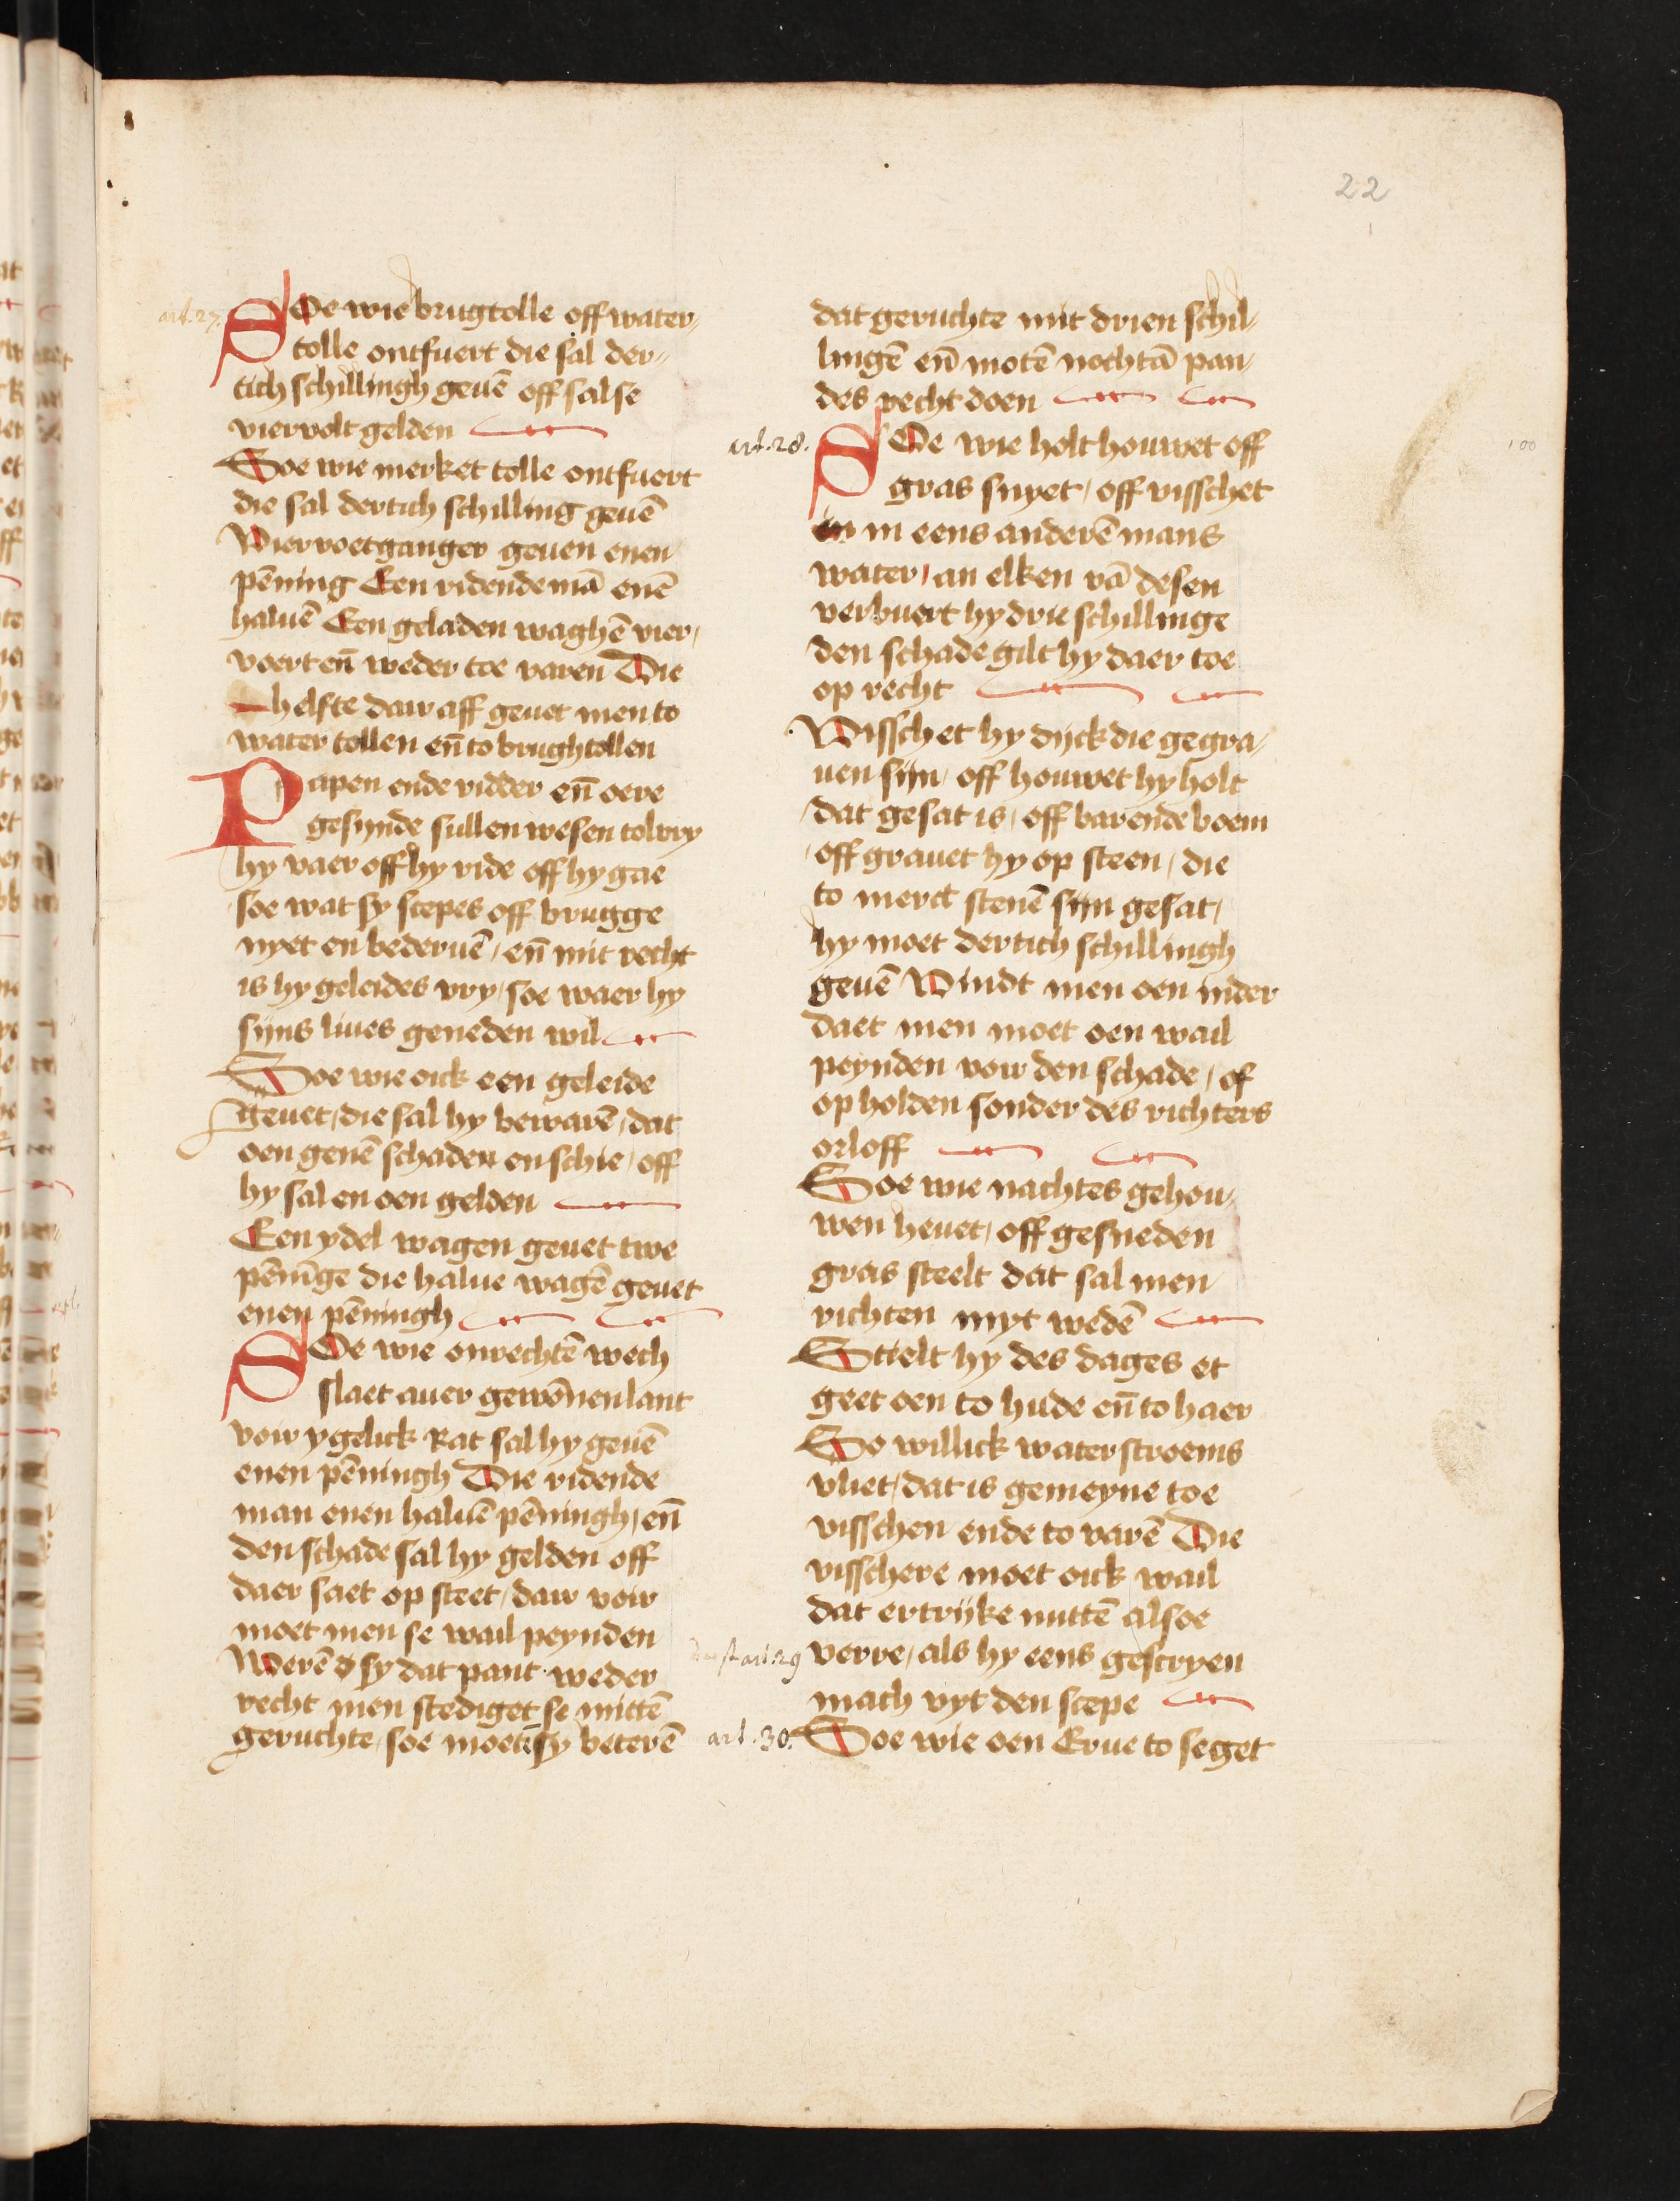 22
art. 27.
SOe wie brugtolle off water⸗
tolle ontfuert die sal der⸗
tich schillingh geuē off sal se
viervolt gelden
Soe wie merket tolle ontfuert
die sal dertich schilling geuē
Vier voetganger geuen enen
pēning Een ridende mā enē
haluē Een geladen waghē vier /
voert en̄ weder toe varen Die
helfte daır aff geuet men to
water tollen en̄ to brughtollen
Papen ende ridder en̄ oere
gesynde sullen wesen tolvry
hy vaer off hy ride off hy gae
soe wat sy scepes off brugge
nyet en bederuē / en̄ mit recht
is hy geleides vry / soe waer hy
sijns liues geneden wil
Soe wie oick een geleide
geuet / die sal hy bewarē / dat
oen genē schaden en schie / off
hy sal en oen gelden
Een ydel wagen geuet twe
pēnīge die halue wagē geuet
enen pēningh
SOe wie onrechtē wech
slaet auer gewōnen lant
voir ygelick Rat sal hy geuē
enen pēningh Die ridende
man enen haluē pēningh / en̄
den schade sal hy gelden off
daer saet op steet / daır voir
moet men se wail peynden
Werē d sy dat pant weder
recht men stediget se mittē
geruchte / soe moetē sy beterē
dat geruchte mit drien schil⸗
lingē en̄ motē nochtā pan⸗
des recht doen
art. 28.
100
SOe wie holt houwet off
gras snyet / off visschet
in eens anderē mans
water / an elken vā desen
verbuert hy drie schillinge
den schade gilt hy daer toe
op recht
Visschet hy dijck die gegra⸗
uen sijn / off houwet hy holt
dat gesat is / off barende boem
off grauet hy op steen / die
to merct stenē sijn gesat /
hy moet dertich schillingh
geuē Vindt men oen inder
daet men moet oen wail
peynden voir den schade / of
op holden sonder des richters
orloff
Soe wie nachtes gehou⸗
wen heuet / off gesneden
gras steelt dat sal men
richten myt wedē
Stielt hy des dages et
geet oen to hude en̄ to haer
So willick water stroems
vliet / dat is gemeyne toe
visschen ende to varē Die
visschere moet oick wail
dat ertrijke nuttē alsoe
art. 29
verre / als hy eens gescryen
mach vyt den scepe
art. 30.
Soe wie oen Erue to seget